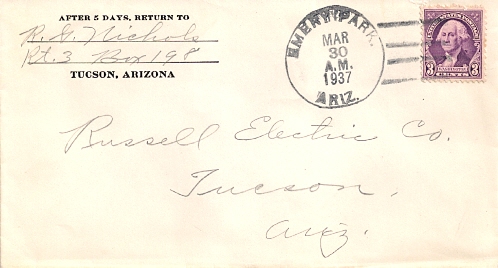 AFTER 5 DAYS, RETURN TO
R. G. Nichols
Rt. 3 Box 198
TUCSON, ARIZONA
EMERY PARK,
MAR
30
A.M.
1937
ARIZ.
UNITED STATES POSTAGE
WASHINGTON
3 CENTS 3
Russell Electric Co.
Tucson,
Ariz.